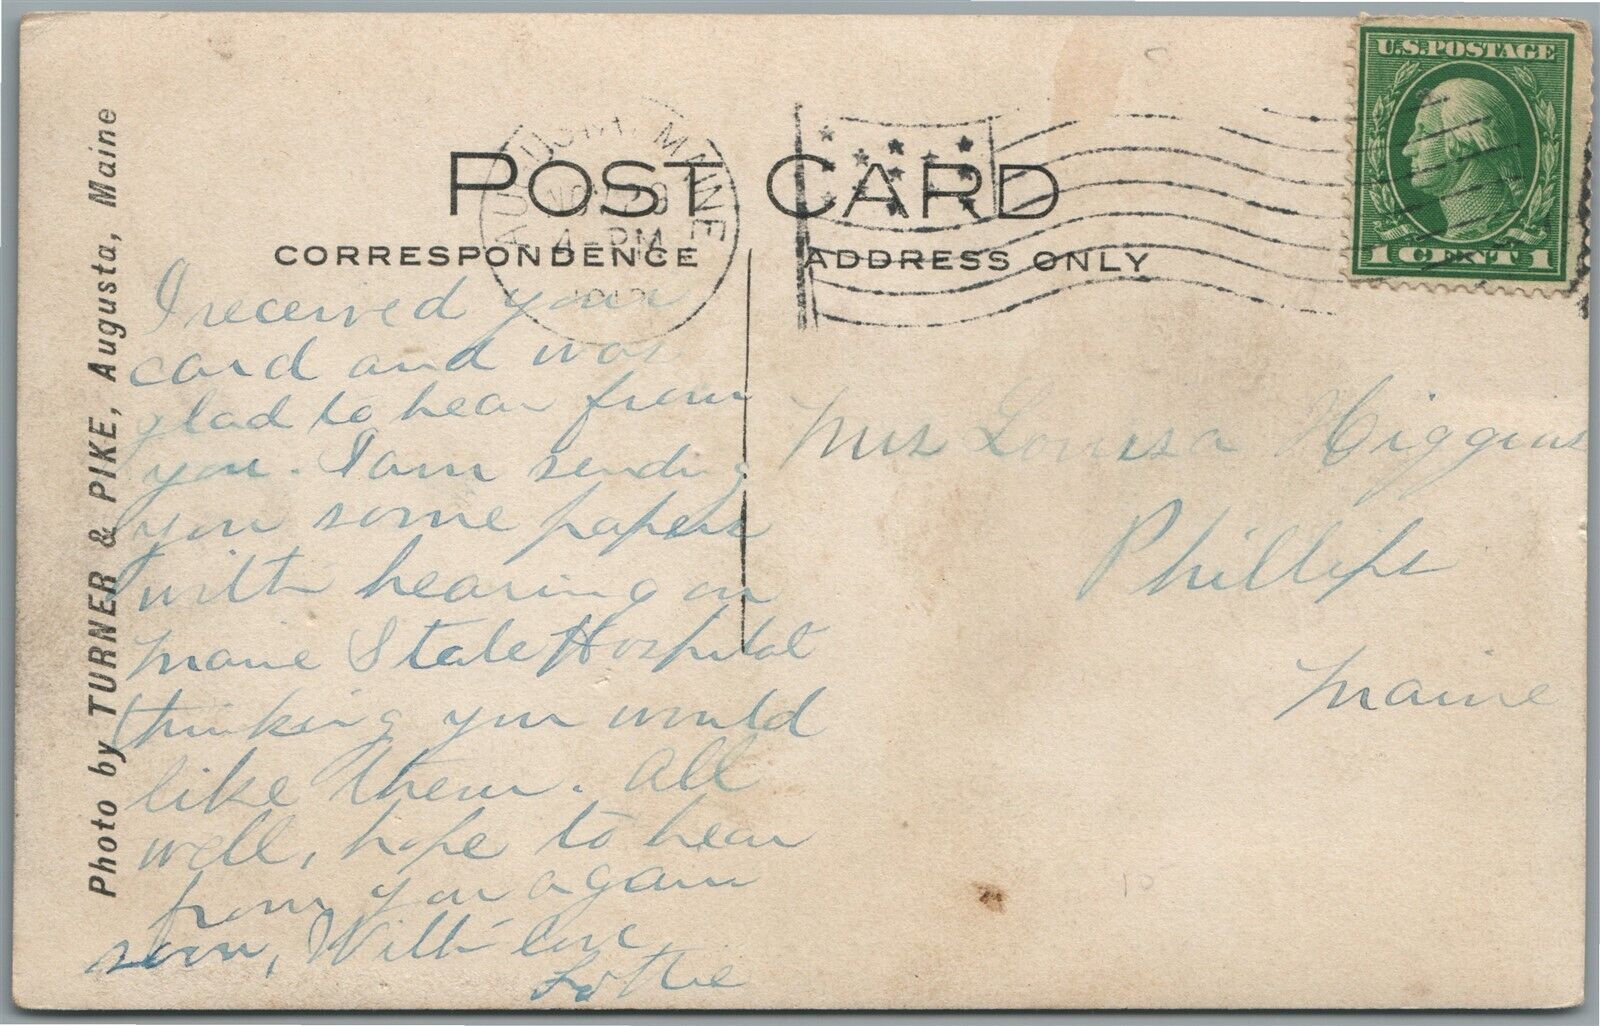 U.S. POSTAGE
1 CENT 1
AUGUSTA, MAINE
4-PM
POST CARD
CORRESPONDENCE
ADDRESS ONLY
Photo by TURNER & PIKE, Augusta, Maine
I received your
card and was
glad to hear from
you. I am sending
you some papers
with hearing on
Maine State Hospital
thinking you would
like them. All
well, hope to hear
from you again
soon, With love
Lottie
Mrs Louisa Higgins
Phillips
Maine
10